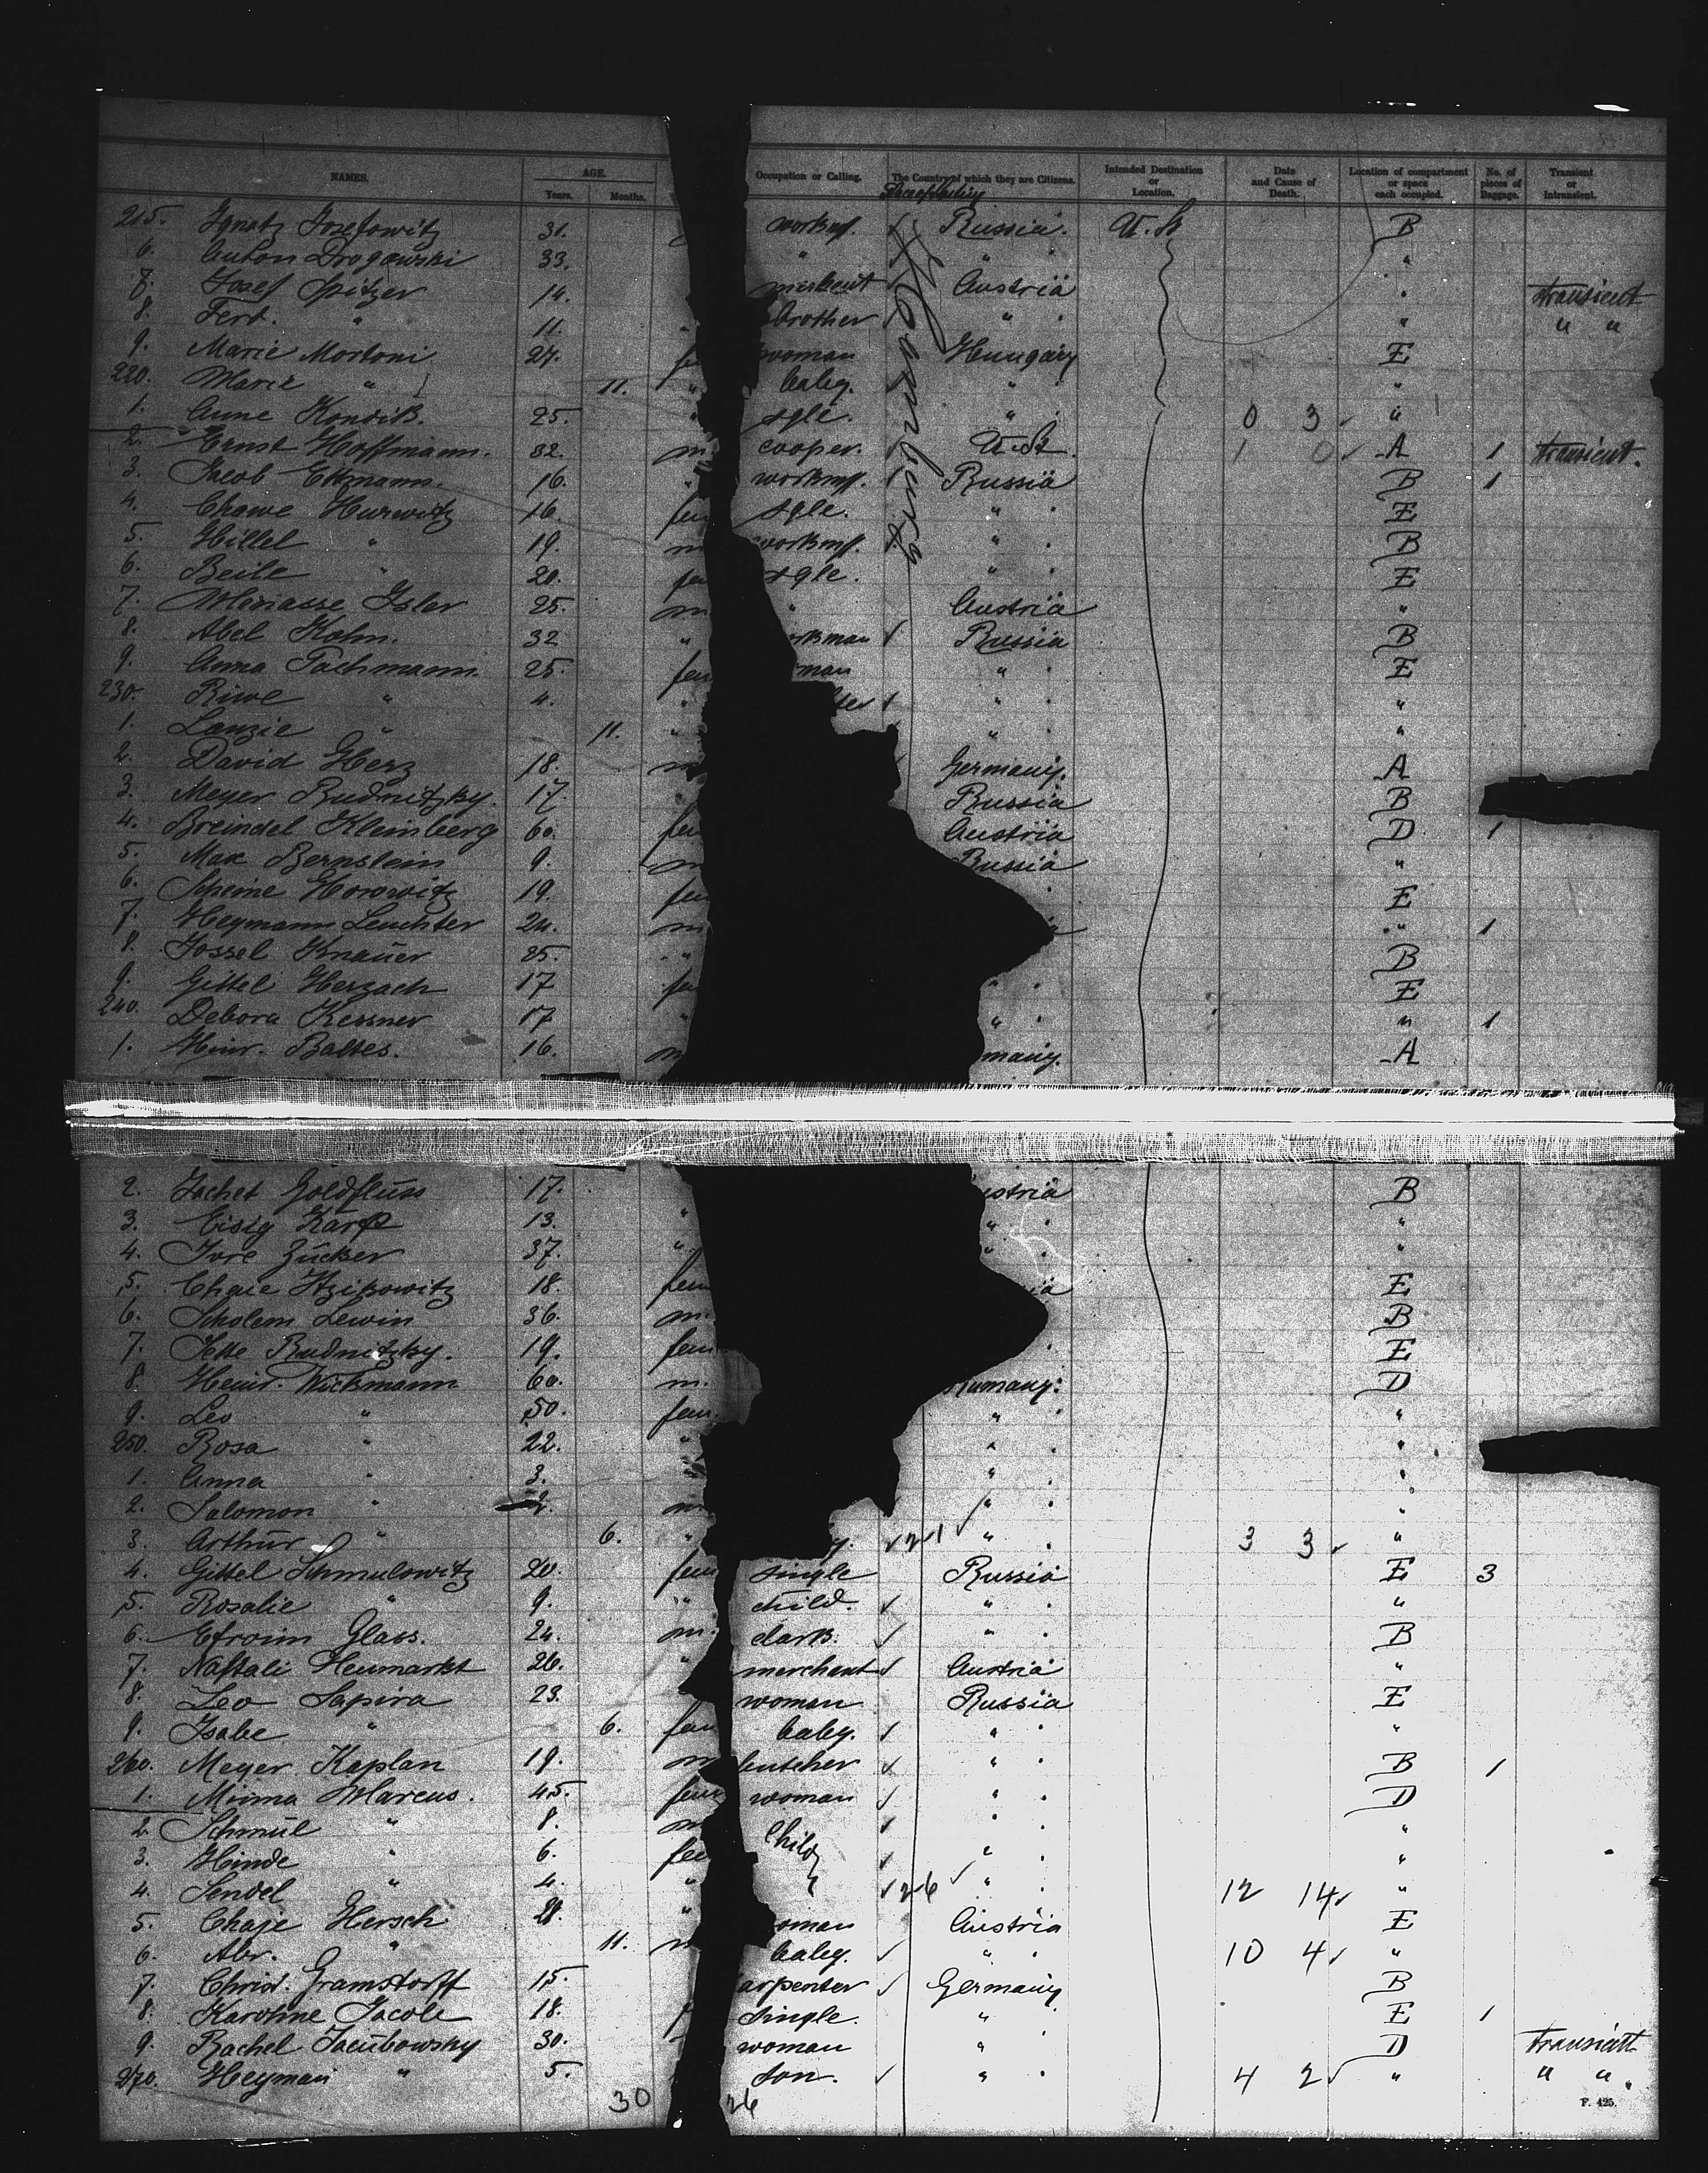 NAMES. AGE. Years. Months. Occupation or Calling. The Country of which they are Citizens. Intended Destination or Location. Date and Cause of Death. Location of compartment or space each occupied. No. of pieces of Baggage. Transient or Intransient.
Hamburg
215. Ignatz Josefowitz 31. workm. ✓ Russia. U. St B
6. Anton Drogowski 33. " " "
7. Josef Spitzer 14. ✓ Austria " transient
8. Ferd. " 11. " brother ✓ " " " "
9. Marie Mortoni 27. woman Hungary E
220. Marie " 11. " baby. " "
1. Anne 25. " sgle. " 0 3 ✓ "
2. Ernst Hoffmann. 32. m cooper. U. St. 1 0 ✓ A 1 transient.
3. Jacob Ettmann. 16. " workm. ✓ Russia B 1
4. Chawe Hurwitz 16. fem sgle. " E
5. Hillel " 19. m workm. " B
6. Beile " 20. fem sgle. " E
7. Menasse Isler 25. m " Austria "
8. Abel Kohn. 32 " rkman ✓ Russia B
9. Anna Tachmann. 25. fem man " E
230. Riwe " 4. " ter ✓ " "
1. " 11. " " "
2. David Herz 18. m Germany. A
3. Meyer Rudnitzky. 17. " Russia B
4. Breindel Kleinberg 60. fem Austria D 1
5. Max Bernstein 9. m Russia "
6. Scheine Horowitz 19. fem E
7. Heymann Leuchter 24. m " 1
8. Jossel Knauer 25. " B
9. Gittel Herzach 17 fem " E
240. Debora Kessner 17 " " " 1
1. Heinr. Baltes. 16. m many. A
2. Jachet Goldfluss 17. ustria B
3. Eisig Karp 13. " " "
4. Zucker 37. " " "
5. Chaie Itzikowitz 18. fem ia E
6. Scholem Lewin 36. m. B
7. Jette Rudnitzky. 19. fem E
8. Heinr. Wickmann 60. m. many. D
9. Leo " 50. fem. " "
250. Rosa " 22. " " "
1. Anna " 3. " " "
2. Salomon " 2. m " "
3. Arthur " 6. " y. ✓ 2-1 ✓ " 3 3 ✓ "
4. Gittel Schmulowitz 20. fem single Russia E 3
5. Rosalie " 9. " child. ✓ " "
6. Efroim Glass. 24. m. clark. ✓ " B
7. Naftali Heumarkt 26. " merchant ✓ Austria "
8. Leo Sapira 23. woman Russia E
9. Isabe " 6. fem baby. ✓ " "
260. Meyer Kaplan 19. m butcher ✓ " B 1
1. Minna Marcus. 45. fem woman ✓ " D
2. Schmul " 8. m Child ✓ " "
3. Hinde " 6. fem ✓ " "
4. Sendel " 4. " " ✓ 2-6 ✓ " 12 14 ✓ "
5. Chaje Hersch 21. " oman Austria E
6. Abr. " 11. m baby. ✓ " 10 4 ✓ "
7. Christ. Gramstorff 15. arpenter ✓ Germany B
8. Karoline Jacob 18. f single. " E 1
9. Rachel Jacubowsky 30. woman " D transient
270. Heyman " 5. son. ✓ " 4 2 ✓ " " "
30 26
F. 425.